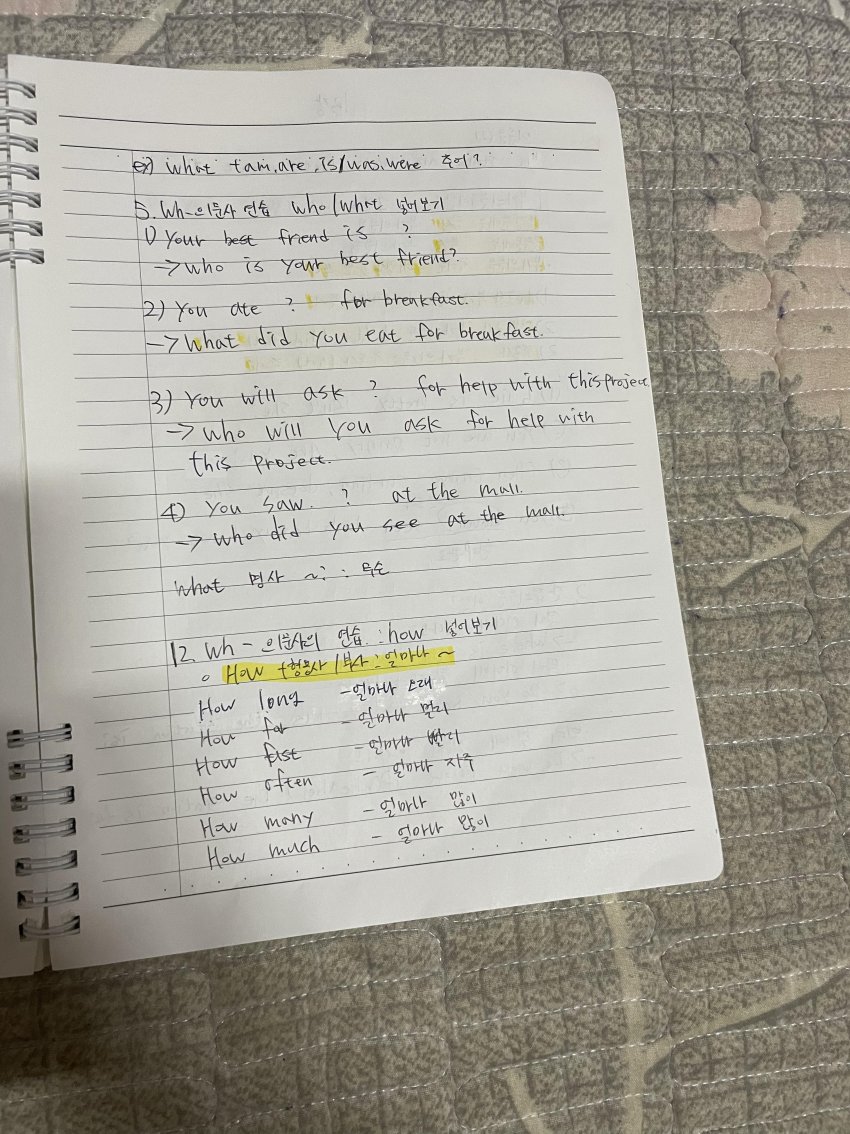 ex) what +am.are.is/was.were 주어?
5. Wh-의문사 연습 who/what 넣어보기
1) Your best friend is ?
→ who is your best friend?
2) You ate ? for breakfast.
→ What did you eat for breakfast.
3) You will ask ? for help with this project
→ who will you ask for help with
this project.
4) you saw. ? at the mall.
→ who did you see at the mall.
what 명사 ~:
12. wh - 의문사의 연습 : how 넣어보기
How +형용사/부사 : 얼마나 ~
How long - 얼마나 오래
How far - 얼마나 멀리
How fast - 얼마나 빨리
How often - 얼마나 자주
How many - 얼마나 많이
How much - 얼마나 많이